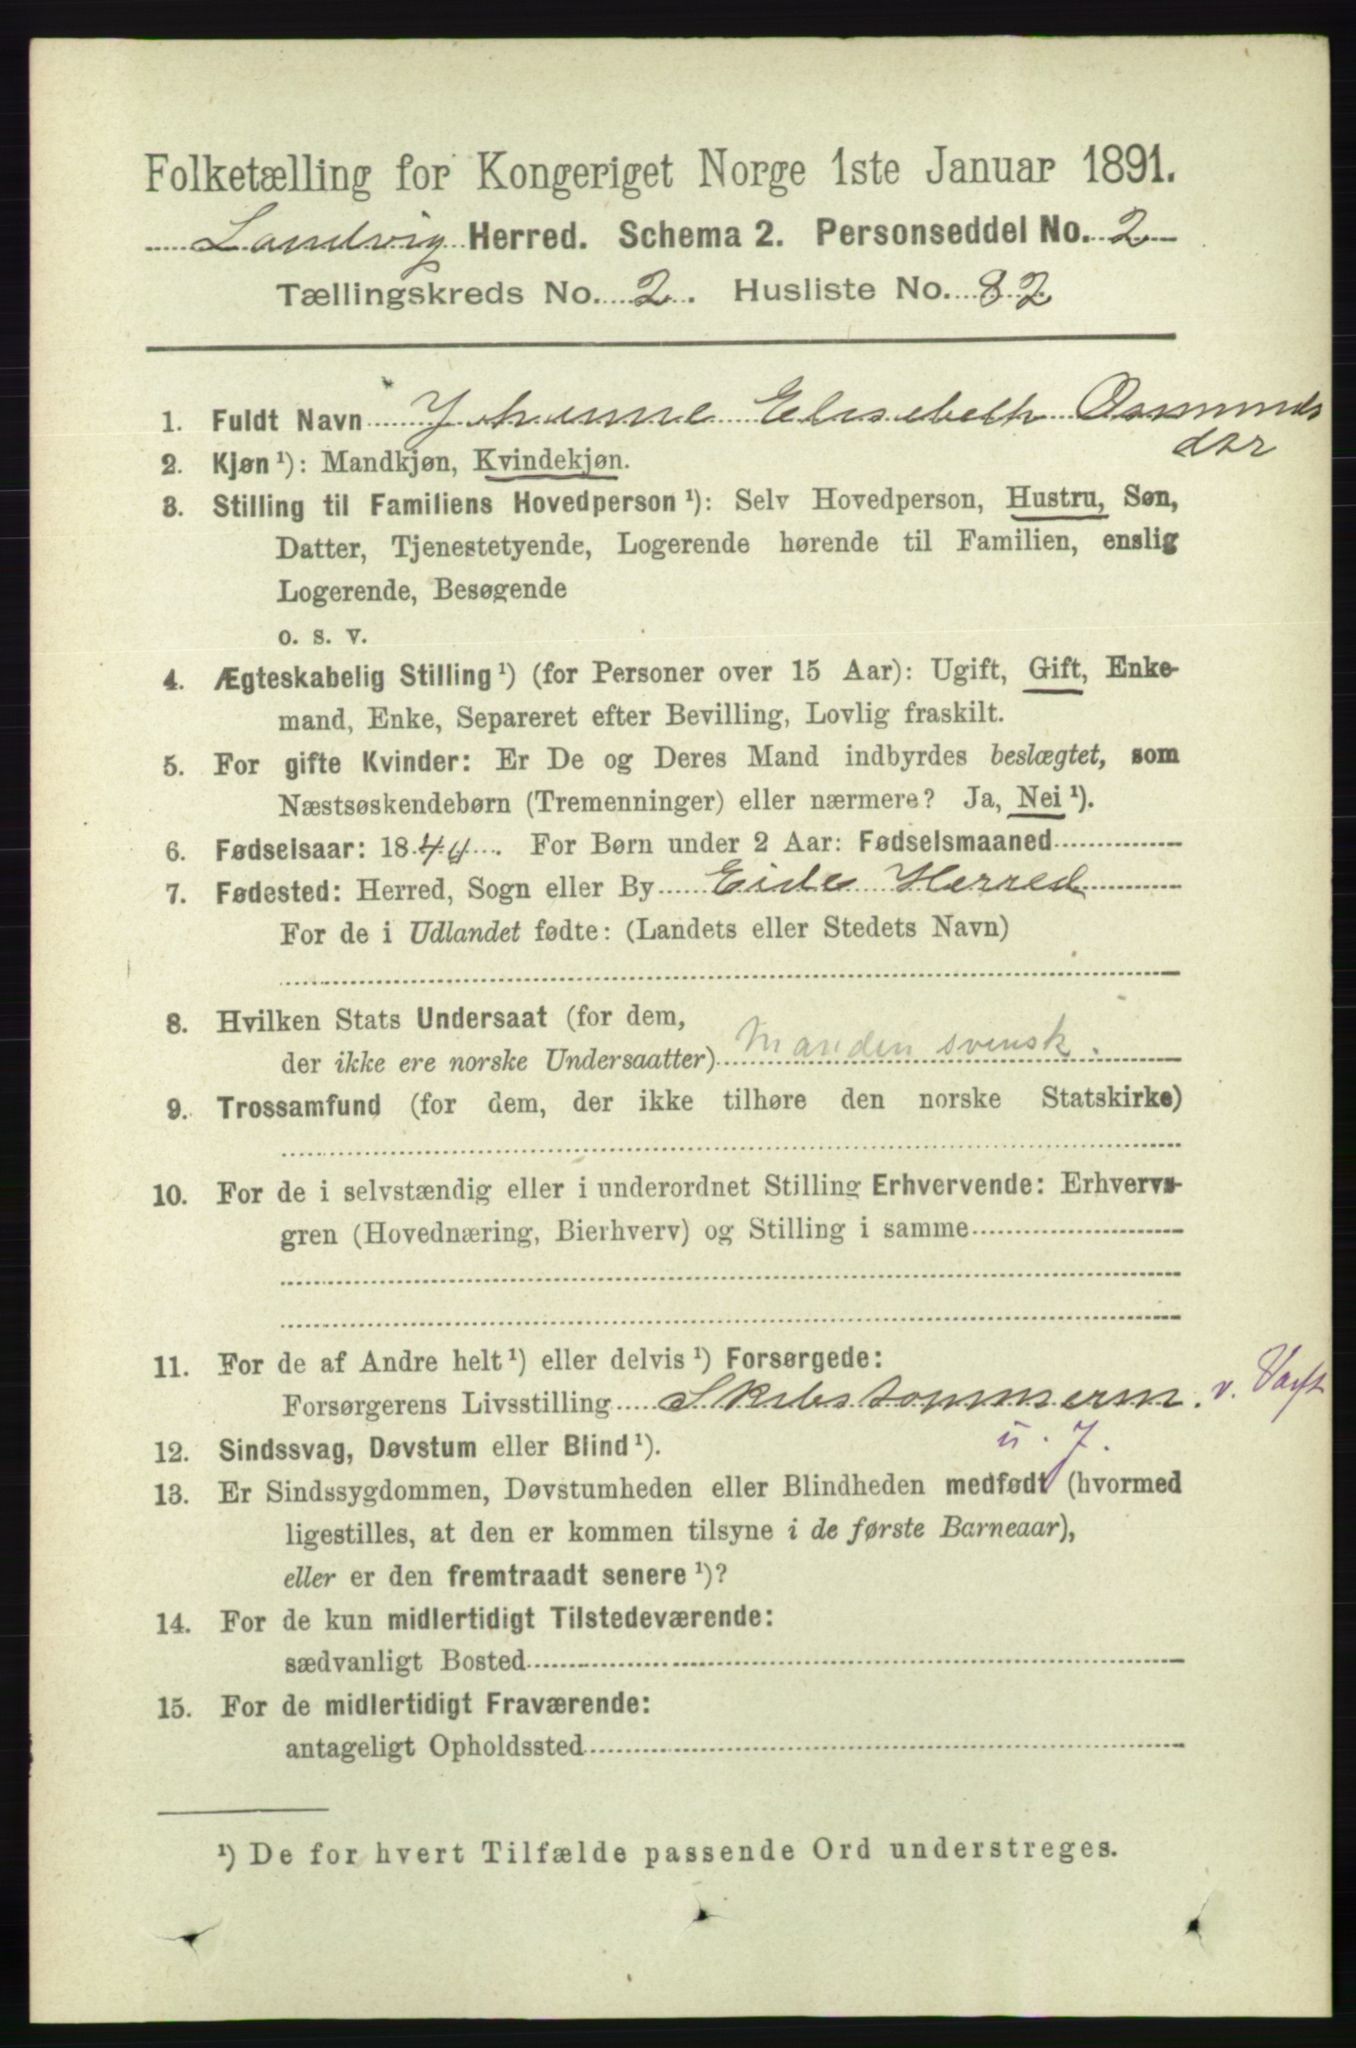 Folketælling for Kongeriget Norge 1ste Januar 1891.
Landvig Herred. Schema 2. Personseddel No. 2
Tællingskreds No. 2. Husliste No. 82
1. Fuldt Navn Johanne Elisebeth Osmunds
dar
2. Kjøn ¹): Mandkjøn, Kvindekjøn.
3. Stilling til Familiens Hovedperson ¹): Selv Hovedperson, Hustru, Søn,
Datter, Tjenestetyende, Logerende hørende til Familien, enslig
Logerende, Besøgende
o. s. v.
4. Ægteskabelig Stilling ¹) (for Personer over 15 Aar): Ugift, Gift, Enke-
mand, Enke, Separeret efter Bevilling, Lovlig fraskilt.
5. For gifte Kvinder: Er De og Deres Mand indbyrdes beslægtet, som
Næstsøskendebørn (Tremenninger) eller nærmere? Ja, Nei ¹).
6. Fødselsaar: 18 . For Børn under 2 Aar: Fødselsmaaned
7. Fødested: Herred, Sogn eller By Eide Herred
For de i Udlandet fødte: (Landets eller Stedets Navn)
8. Hvilken Stats Undersaat (for dem,
der ikke ere norske Undersaatter) Manden svensk.
9. Trossamfund (for dem, der ikke tilhøre den norske Statskirke)
10. For de i selvstændig eller i underordnet Stilling Erhvervende: Erhvervs-
gren (Hovednæring, Bierhverv) og Stilling i samme
11. For de af Andre helt ¹) eller delvis ¹) Forsørgede:
Forsørgerens Livsstilling Skibstømmerm. v. Værft
12. Sindssvag, Døvstum eller Blind ¹).
13. Er Sindssygdommen, Døvstumheden eller Blindheden medfødt (hvormed
ligestilles, at den er kommen tilsyne i de første Barneaar),
eller er den fremtraadt senere ¹)?
14. For de kun midlertidigt Tilstedeværende:
sædvanligt Bosted
15. For de midlertidigt Fraværende:
antageligt Opholdssted
¹) De for hvert Tilfælde passende Ord understreges.